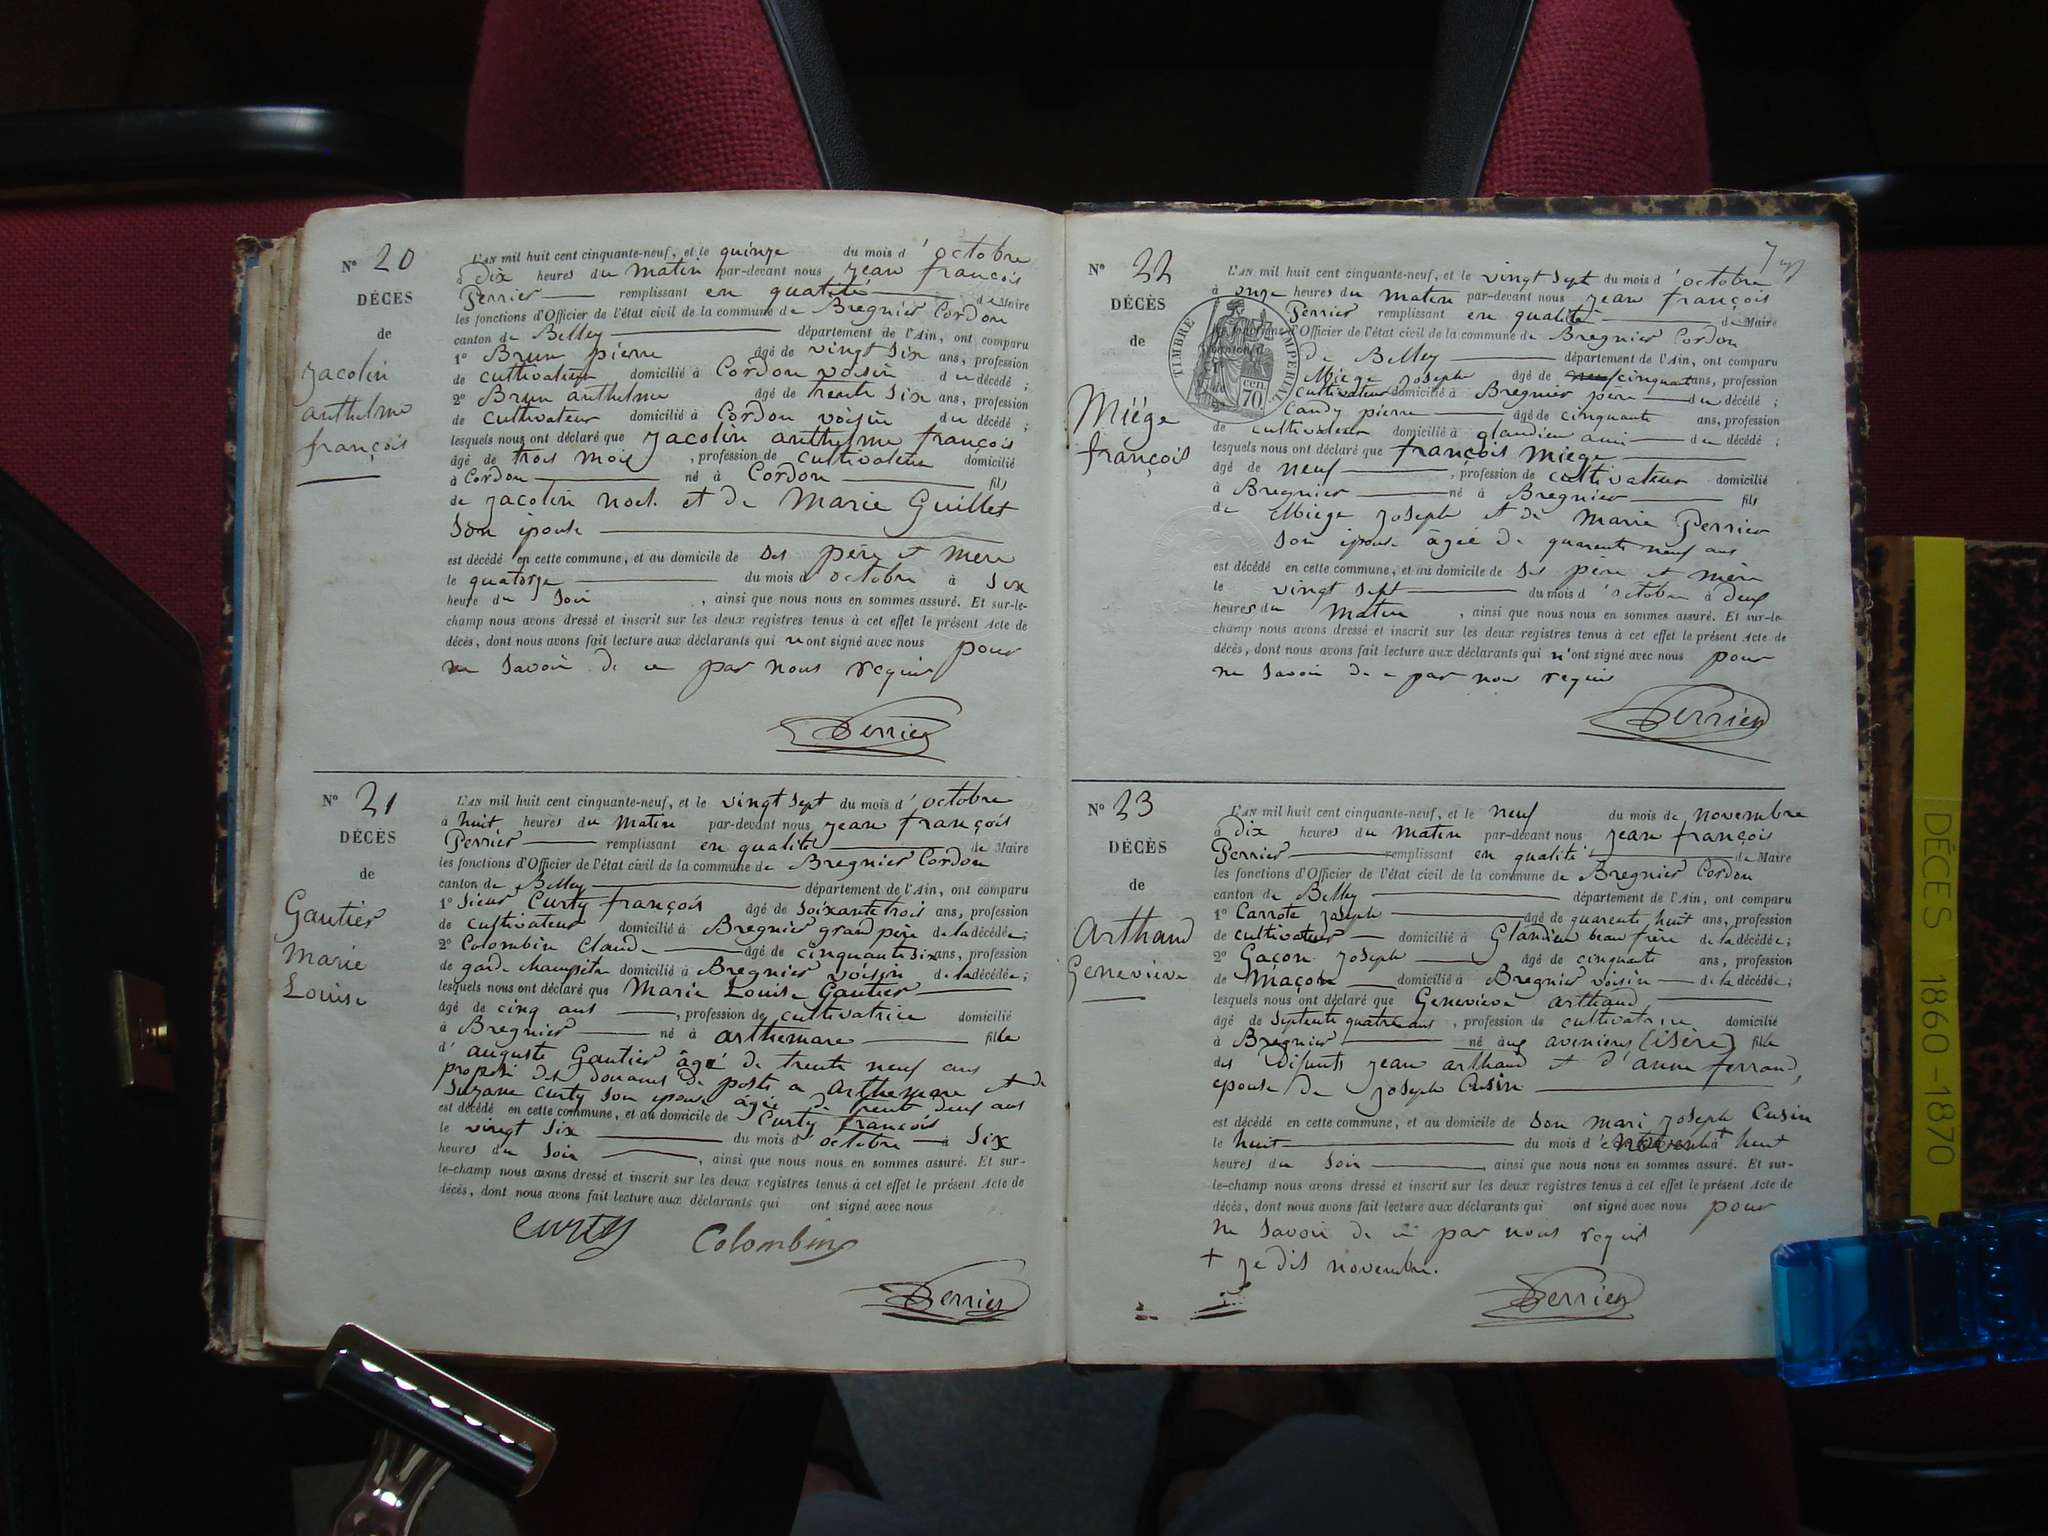 N° 20
DÉCÈS
de
Jacolin
anthelme
françois
L'AN mil huit cent cinquante-neuf, et le quinze du mois d'octobre
à Dix heures du matin par-devant nous jean françois
Perrier remplissant en qualité de Maire
les fonctions d'Officier de l'état civil de la commune de Bregnier Cordon
canton de Belley département de l'Ain, ont comparu
1° Brun pierre âgé de vingt six ans, profession
de cultivateur domicilié à Cordon voisin du décédé ;
2° Brun anthelme âgé de trente six ans, profession
de cultivateur domicilié à Cordon voisin du décédé ;
lesquels nous ont déclaré que Jacolin anthelme françois
âgé de trois mois, profession de cultivateur domicilié
à Cordon né à Cordon fils
de Jacolin noel et de Marie Guillet
son épouse
est décédé en cette commune, et au domicile de ses père et mère
le quatorze du mois d'octobre à six
heure du soir, ainsi que nous nous en sommes assuré. Et sur-le-
champ nous avons dressé et inscrit sur les deux registres tenus à cet effet le présent Acte de
décès, dont nous avons fait lecture aux déclarants qui n'ont signé avec nous pour
ne savoir de ce par nous requis
Perrier
N° 21
DÉCÈS
de
Gautier
Marie
Louise
L'AN mil huit cent cinquante-neuf, et le vingt sept du mois d'octobre
à huit heures du matin par-devant nous jean françois
Perrier remplissant en qualité de Maire
les fonctions d'Officier de l'état civil de la commune de Bregnier Cordon
canton de Belley département de l'Ain, ont comparu
1° sieur Curty françois âgé de soixante trois ans, profession
de cultivateur domicilié à Bregnier grand père de la décédée ;
2° Colombin Claude âgé de cinquante six ans, profession
de garde champêtre domicilié à Bregnier voisin de la décédée ;
lesquels nous ont déclaré que Marie Louise Gautier
âgé de cinq ans, profession de cultivatrice domicilié
à Bregnier né à arthemare fille
d'auguste Gautier âgé de trente neuf ans
proposé des douanes de poste a arthemare et de
suzane Curty son épouse âgée de trente deux ans
est décédé en cette commune, et au domicile de Curty françois
le vingt six du mois d'octobre à six
heures du soir, ainsi que nous nous en sommes assuré. Et sur-
le-champ nous avons dressé et inscrit sur les deux registres tenus à cet effet le présent Acte de
décès, dont nous avons fait lecture aux déclarants qui ont signé avec nous
Curty Colombin
Perrier
N° 22
DÉCÈS
de
Miége
françois
TIMBRE IMPERIAL
70 cen
L'AN mil huit cent cinquante-neuf, et le vingt sept du mois d'octobre
à onze heures du matin par-devant nous jean françois
Perrier remplissant en qualité de Maire
les fonctions d'Officier de l'état civil de la commune de Bregnier Cordon
canton de Belley département de l'Ain, ont comparu
Miege Joseph âgé de cinquante ans, profession
cultivateur domicilié à Bregnier père du décédé ;
2° Candy pierre âgé de cinquante ans, profession
de cultivateur domicilié à glandieu ami du décédé ;
lesquels nous ont déclaré que françois miege
âgé de neuf, profession de cultivateur domicilié
à Bregnier né à Bregnier fils
de Miege Joseph et de Marie Perrier
son épouse âgée de quarente neuf ans
est décédé en cette commune, et au domicile de ses père et mère
le vingt sept du mois d'octobre à deux
heures du matin, ainsi que nous nous en sommes assuré. Et sur-le-
champ nous avons dressé et inscrit sur les deux registres tenus à cet effet le présent Acte de
décès, dont nous avons fait lecture aux déclarants qui n'ont signé avec nous pour
ne savoir de ce par nous requis
Perrier
N° 23
DÉCÈS
de
Arthaud
Geneviève
L'AN mil huit cent cinquante-neuf, et le neuf du mois de novembre
à Dix heures du matin par-devant nous jean françois
Perrier remplissant en qualité de Maire
les fonctions d'Officier de l'état civil de la commune de Bregnier Cordon
canton de Belley département de l'Ain, ont comparu
1° Carrote Joseph âgé de quarente huit ans, profession
de cultivateur domicilié à Glandieu beau frère de la décédée ;
2° Gaçon Joseph âgé de cinquante ans, profession
de Maçon domicilié à Bregnier voisin de la décédée ;
lesquels nous ont déclaré que Geneviève arthaud
âgé de septente quatre ans, profession de cultivatrice domicilié
à Bregnier né aux aveniers (isère) fille
des défunts jean arthaud et d'anne ferrand,
épouse de Joseph Cusin
est décédé en cette commune, et au domicile de son mari Joseph Cusin
le huit du mois d'novembre + à huit
heures du soir, ainsi que nous nous en sommes assuré. Et sur-
le-champ nous avons dressé et inscrit sur les deux registres tenus à cet effet le présent Acte de
décès, dont nous avons fait lecture aux déclarants qui ont signé avec nous pour
ne savoir de ce par nous requis
+ je dis novembre.
Perrier
DÉCÈS 1860-1870